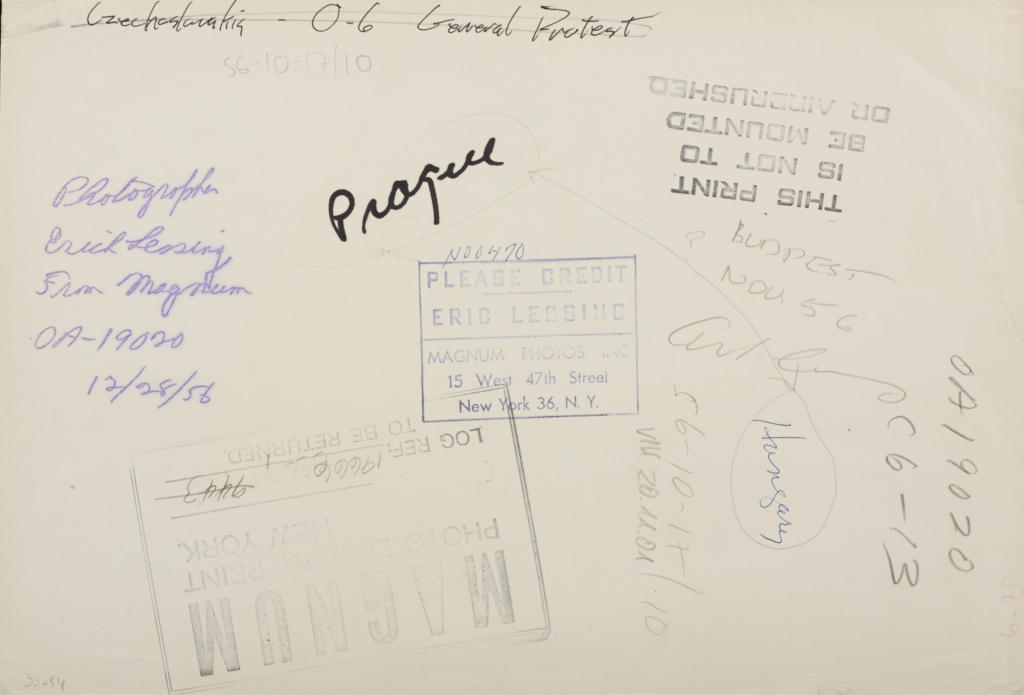 Czechoslovakia - O-6 General Protest
56-10-17/10
Prague
Photographer
Erich Lessing
From Magnum
OA-19020
12/28/56
N00470
PLEASE CREDIT
ERIC LESSING
MAGNUM PHOTOS INC
15 West 47th Street
New York 36, N. Y.
THIS PRINT
IS NOT TO
BE MOUNTED
OR AIRBRUSHED
? BUDPEST
NOV 56
Hungary
56-10-17/
10
C6-13
OA19020
MAGNUM
PHOTO LIBRARY PRINT
NEW YORK.
9443
LOG REF:
TO BE RETURNED.